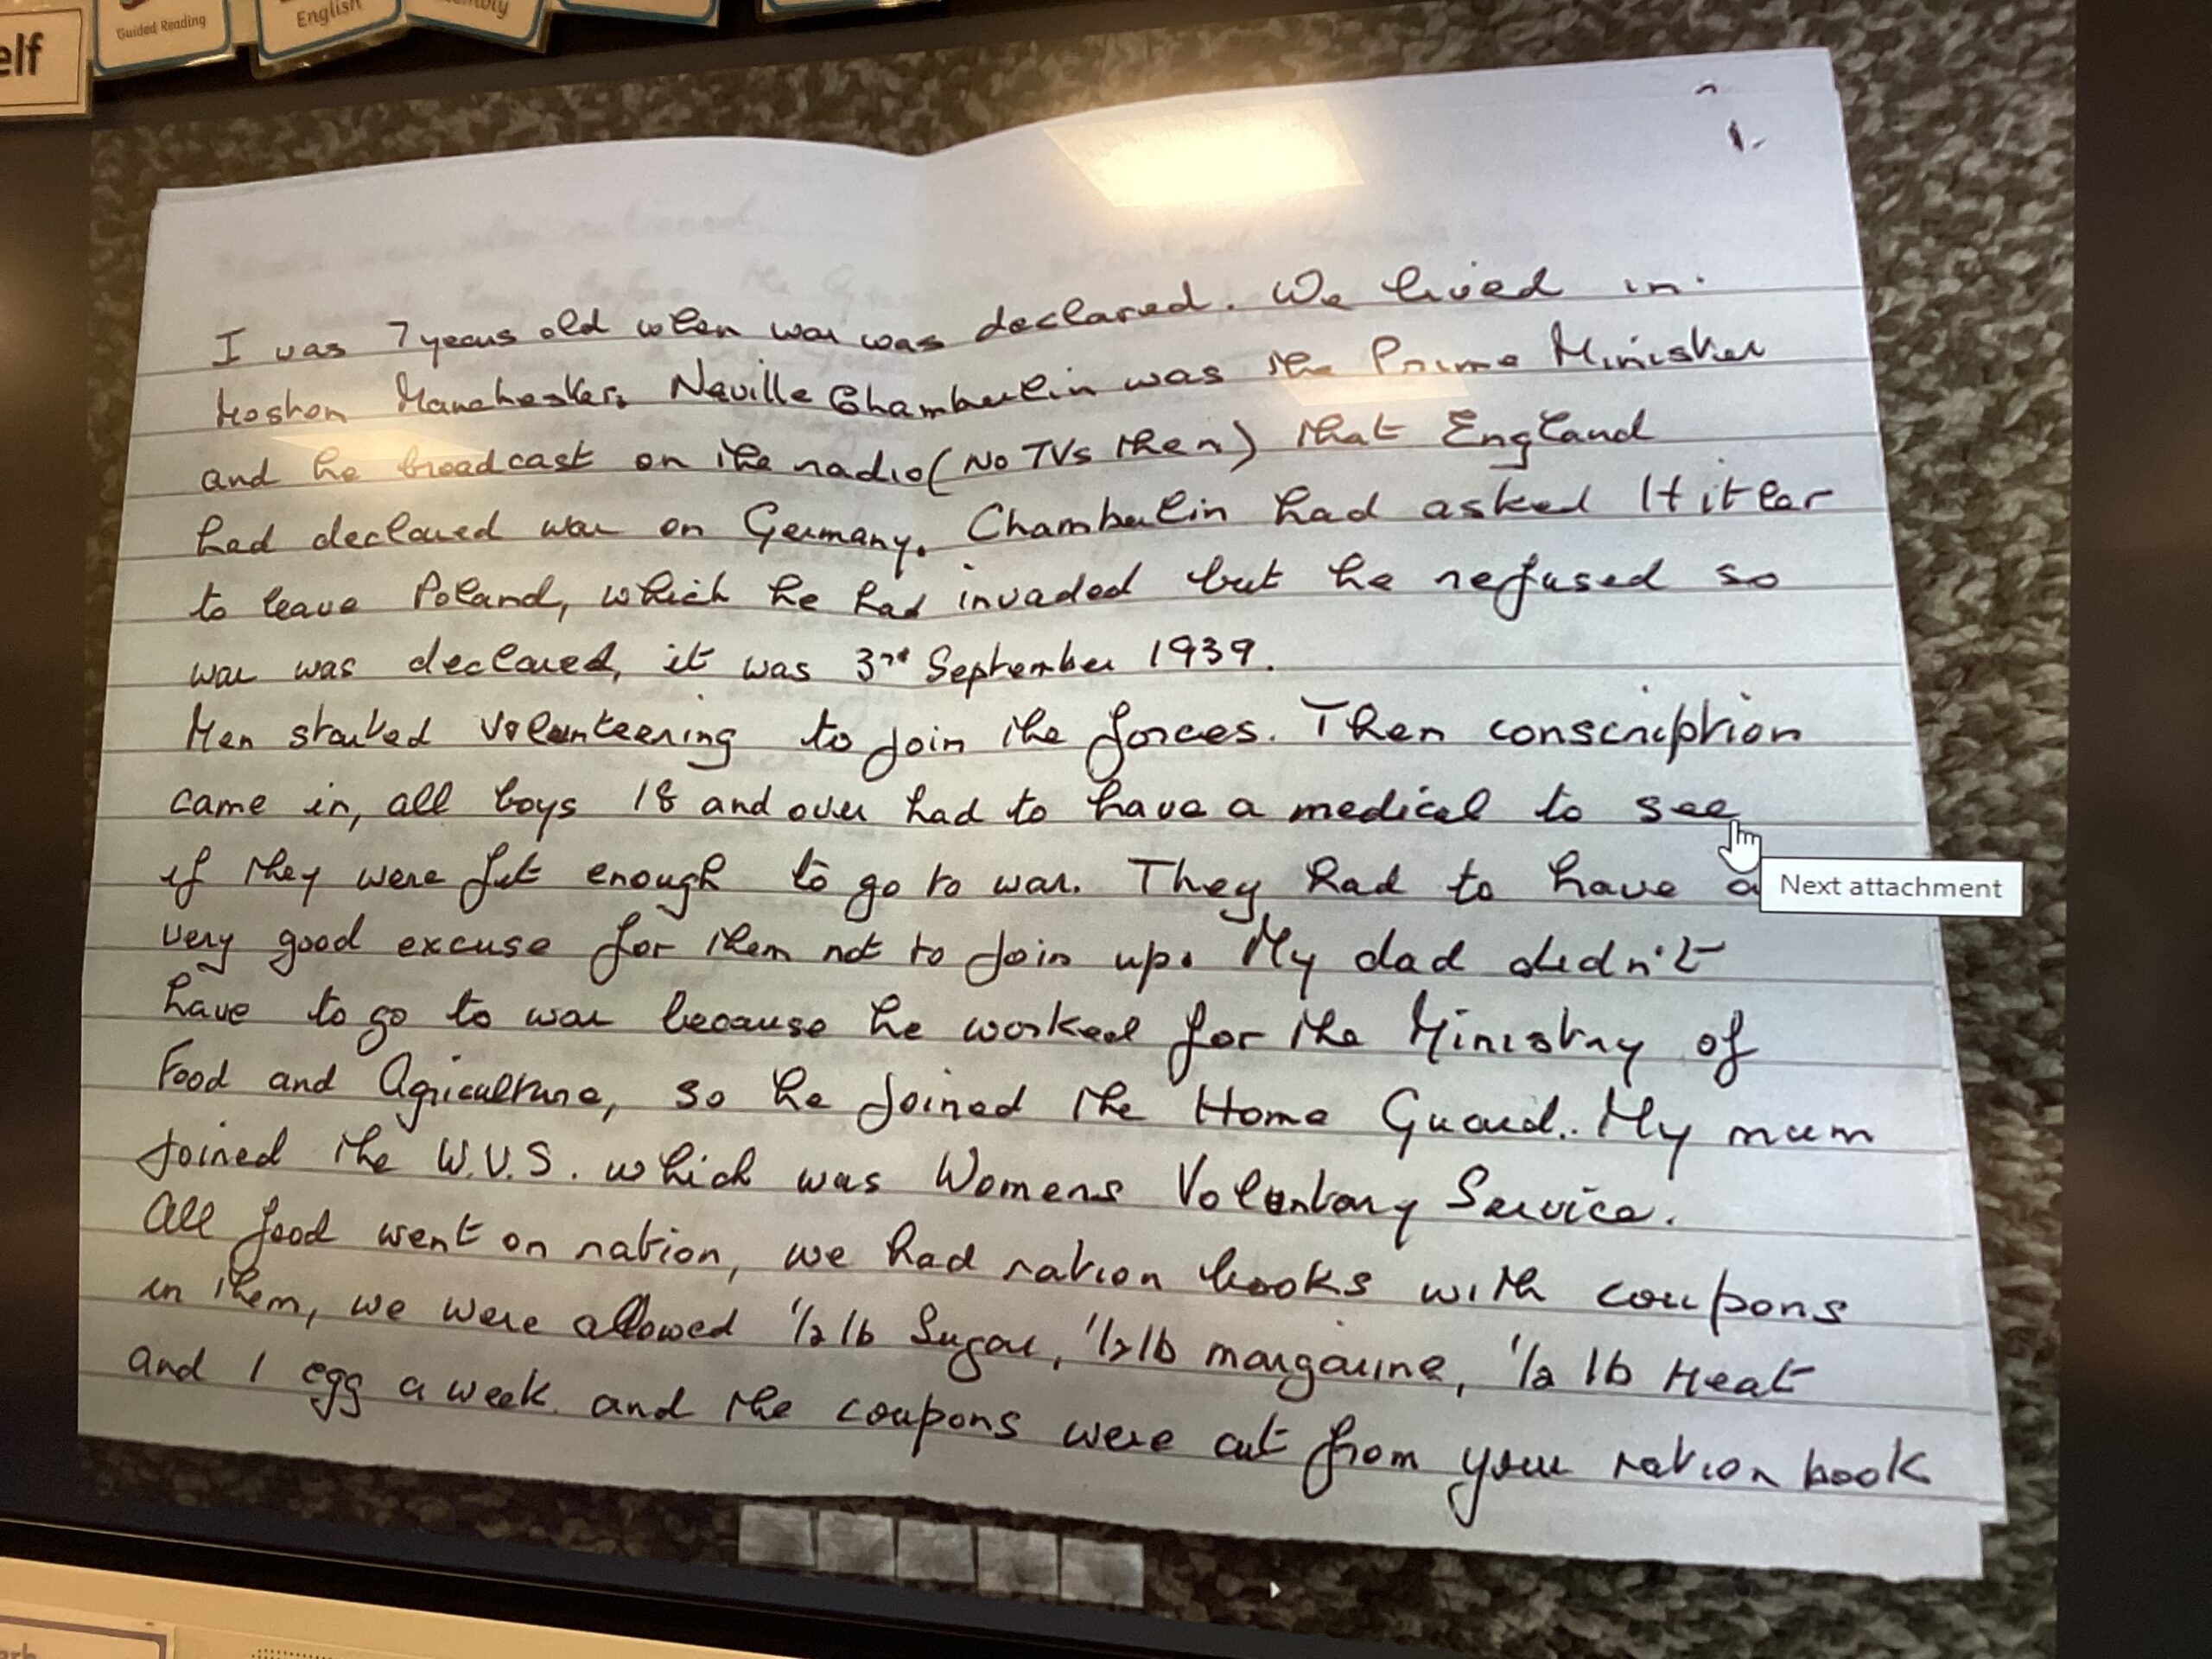 elf
Guided Reading
English
1.
I was 7 years old when war was declared. We lived in.
Moston Manchester. Neville Chamberlin was the Prime Minister
and he broadcast on the radio (No TVs then) that England
had declared war on Germany. Chamberlin had asked Hitler
to leave Poland, which he had invaded but he refused so
war was declared, it was 3rd September 1939.
Men started Volunteering to join the forces. Then conscription
came in, all boys 18 and over had to have a medical to see
if they were fit enough to go to war. They had to have a
Next attachment
very good excuse for them not to join up. My dad didn't
have to go to war because he worked for the Ministry of
Food and Agriculture, so he joined the Home Guard. My mum
joined the W.V.S. which was Womens Voluntary Service.
All food went on ration, we had ration books with coupons
in them, we were allowed 1/2 lb Sugar, 1/2 lb margarine, 1/2 lb Meat
and 1 egg a week. and the coupons were cut from your ration book